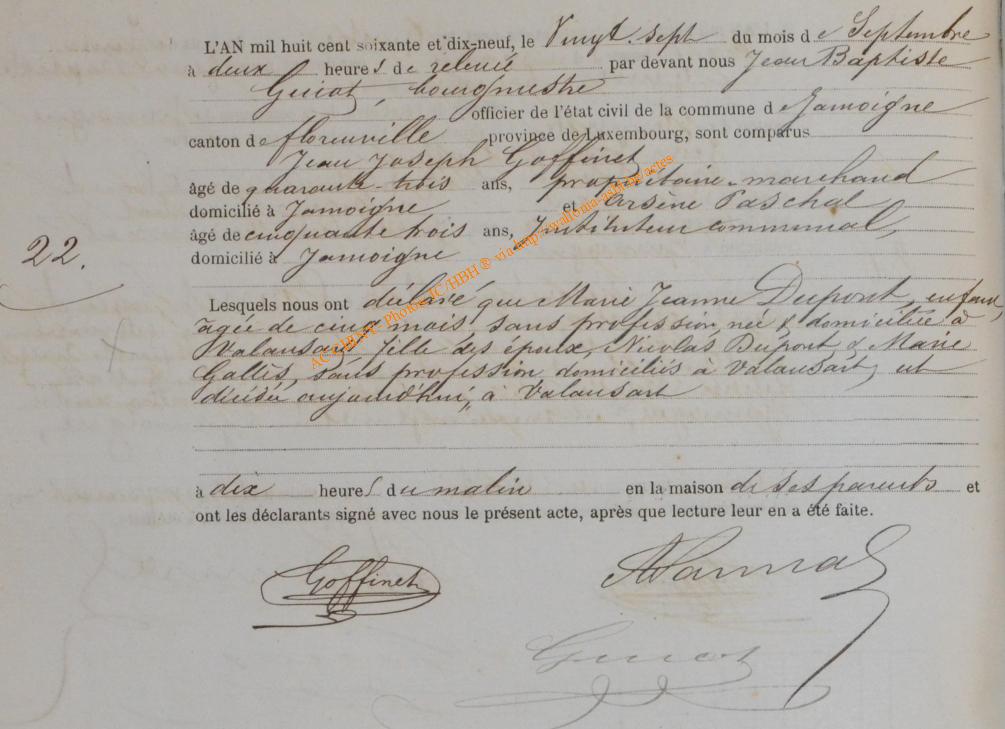 L'AN mil huit cent soixante et dix-neuf, le Vingt-sept du mois de Septembre
à deux heures de relevée par devant nous Jean Baptiste
Guiot, bourgmestre
officier de l'état civil de la commune de Jamoigne
canton de florenville province de Luxembourg, sont comparus
Jean Joseph Goffinet
âgé de quarante-trois ans, propriétaire-marchand
domicilié à Jamoigne et Arsène Paschal
âgé de cinquante trois ans, Instituteur communal,
domicilié à Jamoigne
22.
Lesquels nous ont déclaré que Marie Jeanne Dupont, enfant,
âgée de cinq mois, sans profession, née & domiciliée à
Valansart, fille des époux, Nicolas Dupont & Marie
Gallès, sans profession, domiciliés à Valansart, est
décédée aujourd'hui, à Valansart
à dix heures du matin en la maison de ses parents et
ont les déclarants signé avec nous le présent acte, après que lecture leur en a été faite.
Goffinet
Guiot
AC CHINY - Photos JC/HBH ® via http://wallonia-asbl.org/actes